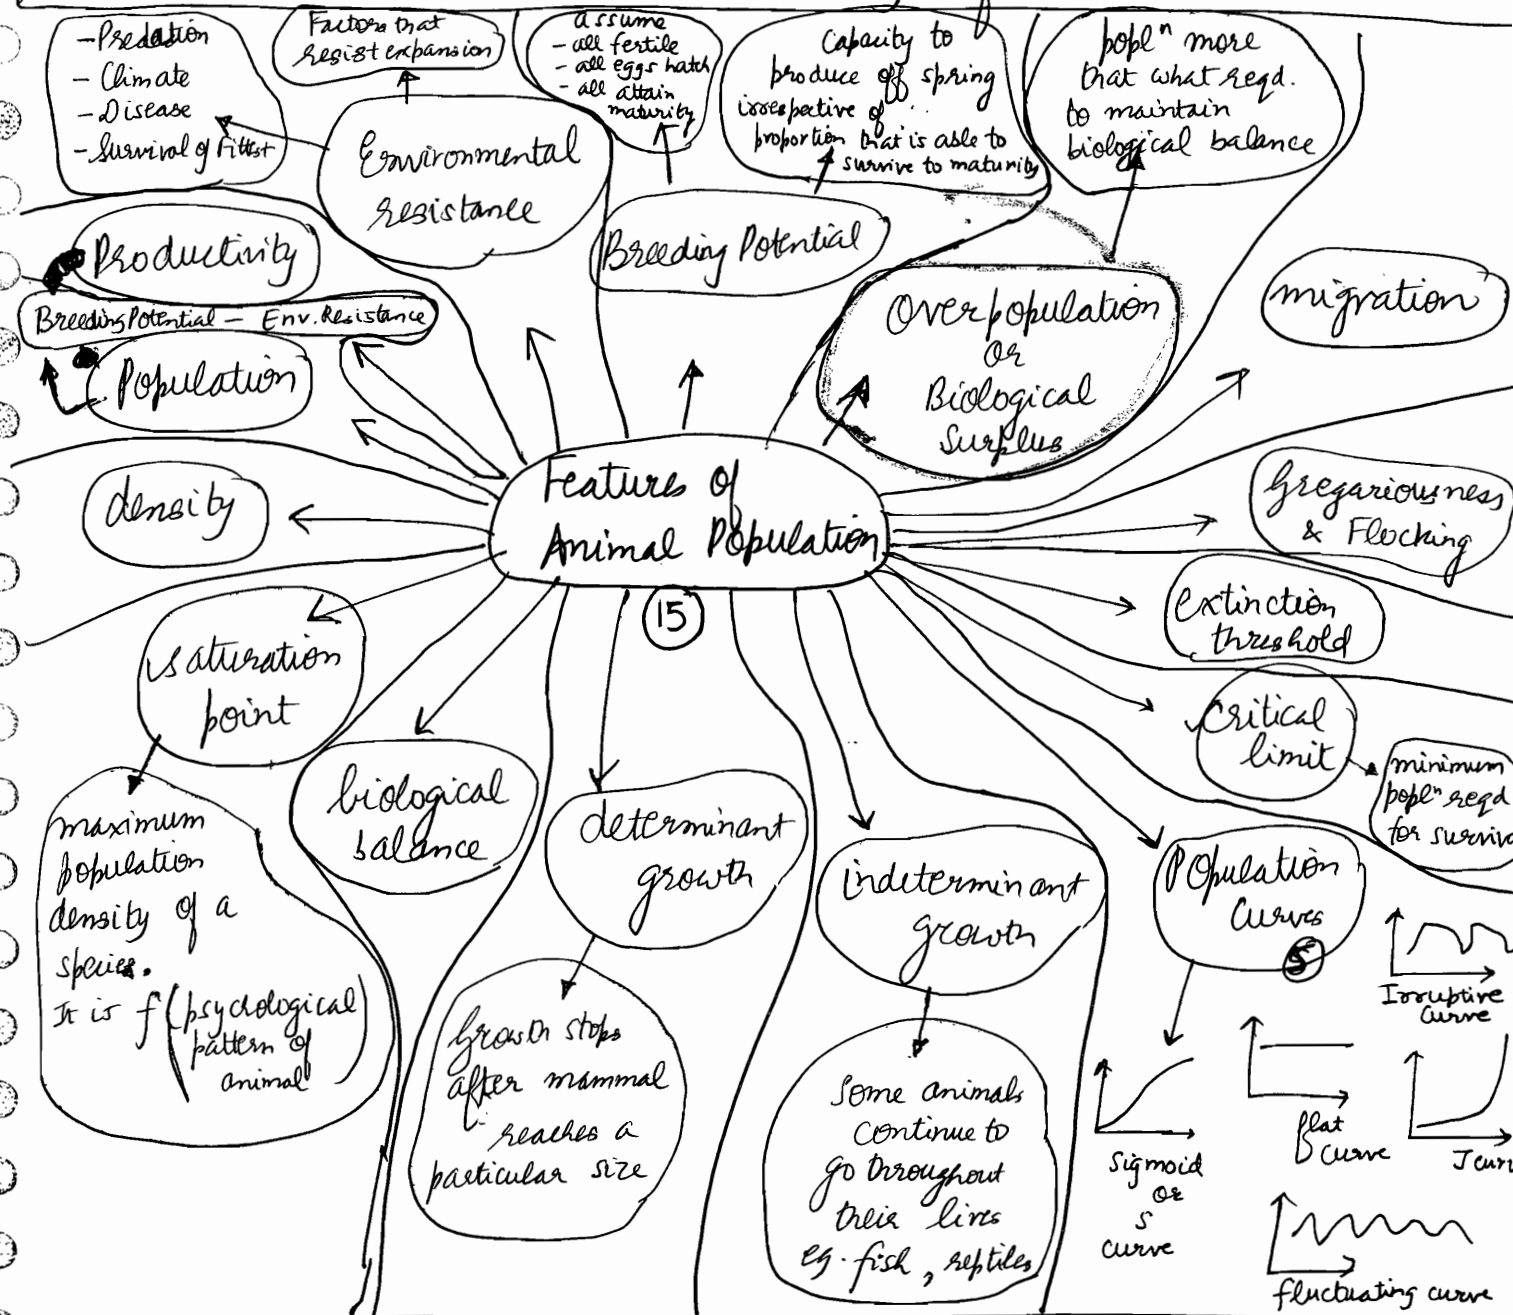 - Predation
- Climate
- Disease
- Survival of Fittest
Factors that
resist expansion
Environmental
resistance
assume
- all fertile
- all eggs hatch
- all attain
maturity
Capacity to
produce off spring
irrespective of
proportion that is able to
survive to maturity
Breeding Potential
popln more
that what reqd.
to maintain
biological balance
Overpopulation
or
Biological
Surplus
migration
Productivity
Breeding Potential - Env. Resistance
Population
density
Features of
Animal Population
15
Gregariousness
& Flocking
extinction
threshold
critical
limit
minimum
popln reqd
for surviva
saturation
point
maximum
population
density of a
species.
It is f (psychological
pattern of
animal)
biological
balance
determinant
growth
Growth stops
after mammal
reaches a
particular size
indeterminant
growth
Some animals
continue to
go throughout
their lives
eg. fish, reptiles
Population
Curves
5
Irruptive
Curve
Sigmoid
or
S
curve
flat
curve
J cur
fluctuating curve